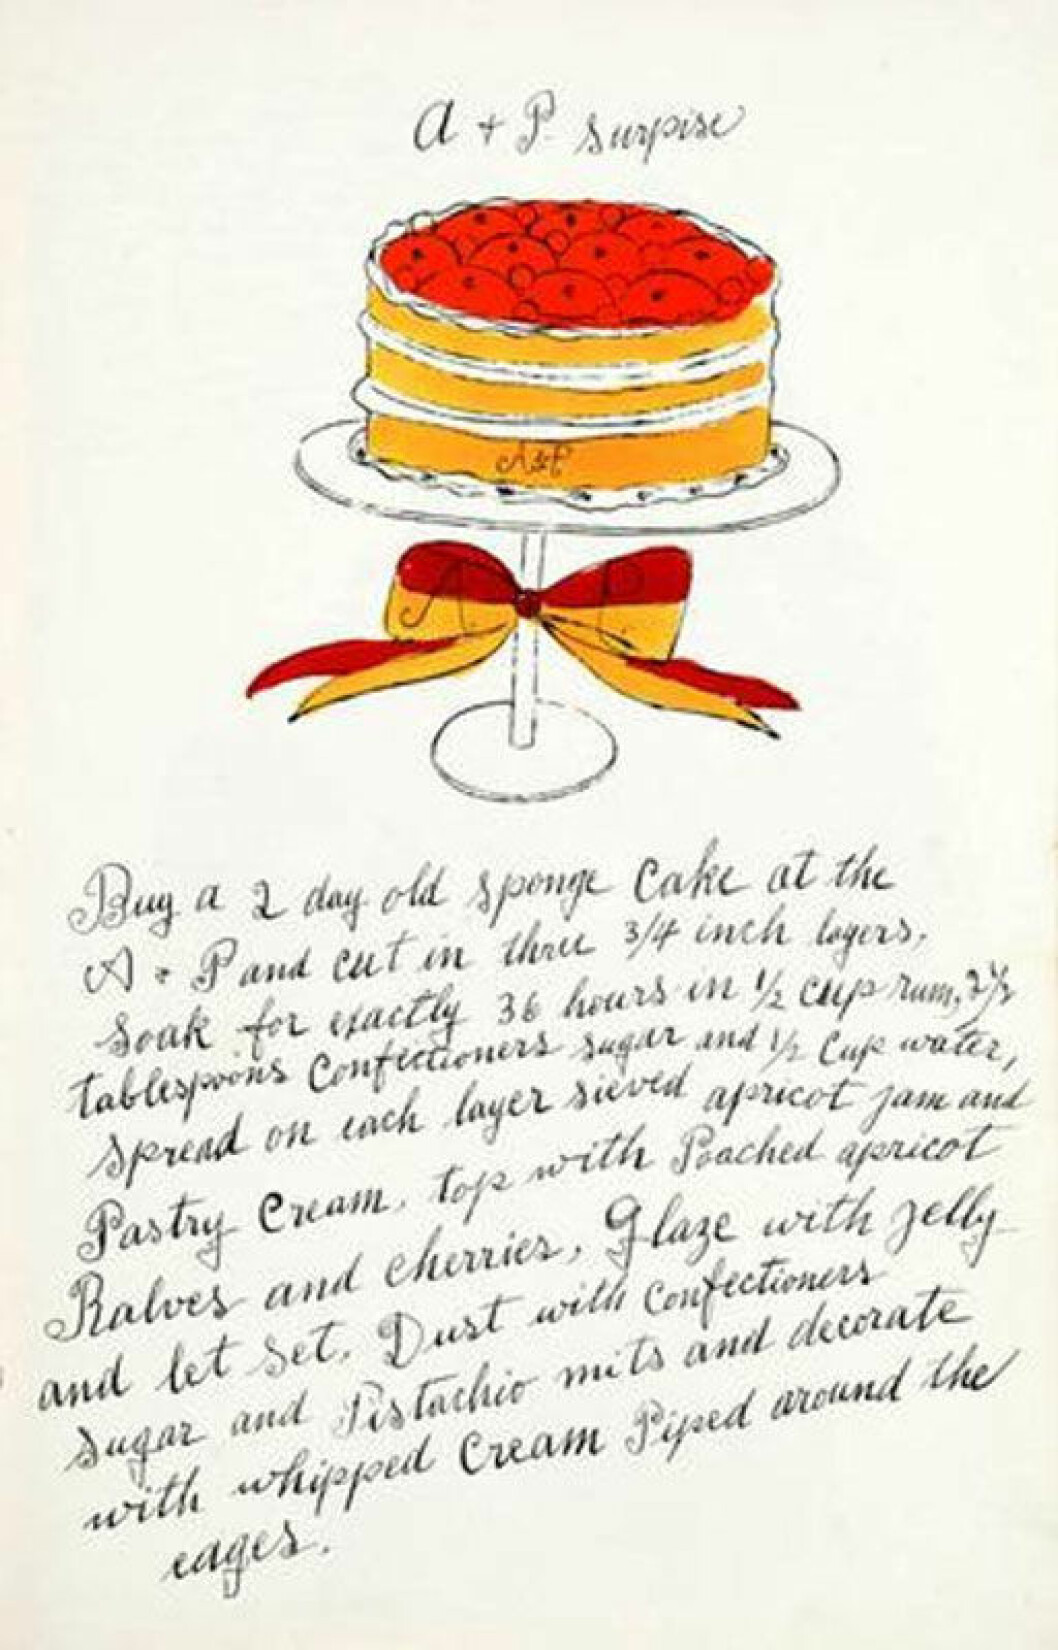 A + P surpise
A&P
A P
Buy a 2 day old sponge cake at the
A + P and cut in three 3/4 inch layers.
Soak for exactly 36 hours in 1/2 cup rum, 2 1/2
tablespoons Confectioners sugar and 1/2 Cup water,
Spread on each layer sieved apricot jam and
Pastry Cream, top with Poached apricot
Halves and cherries, Glaze with jelly
and let set. Dust with confectioners
sugar and Pistachio nuts and decorate
with whipped Cream Piped around the
edges.